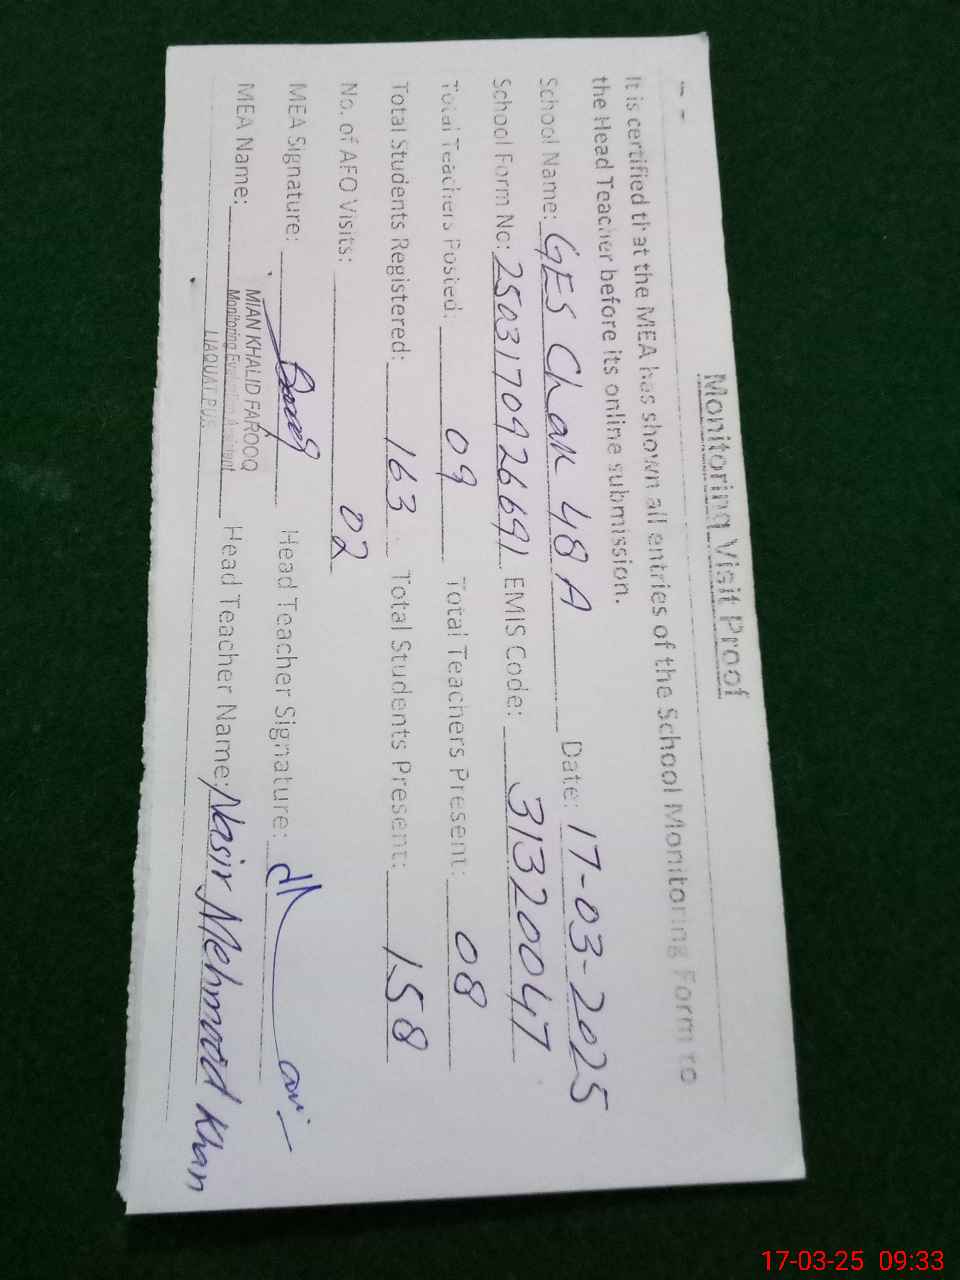 Monitoring Visit Proof
It is certified that the MEA has shown all entries of the School Monitoring Form to
the Head Teacher before its online submission.
School Name: GES Chak 48 A Date: 17-03-2025
School Form No: 2503170926691 EMIS Code: 31320047
Total Teachers Posted: 09 Total Teachers Present: 08
Total Students Registered: 163 Total Students Present: 158
No. of AEO Visits: 02
MEA Signature: Head Teacher Signature:
MEA Name: MIAN KHALID FAROOQ Head Teacher Name: Nasir Mehmood Khan
Monitoring Evaluation Assistant
LIAQUATPUR
17-03-25 09:33